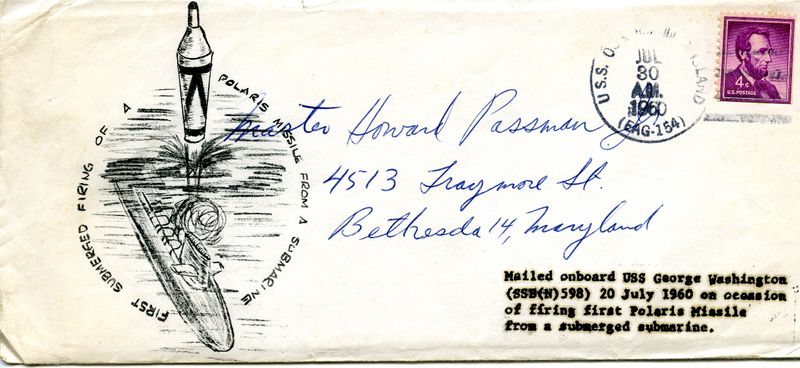 FIRST SUBMERGED FIRING OF A POLARIS MISSILE FROM A SUBMARINE
U.S.S. ISLAND
JUL
30
A.M.
1960
(EAG-154)
4¢
U.S. POSTAGE
Master Howard Passman Jr.
4513 Traymore St.
Bethesda 14, Maryland
Mailed onboard USS George Washington
(SSB(N)598) 20 July 1960 on occasion
of firing first Polaris Missile
from a submerged submarine.